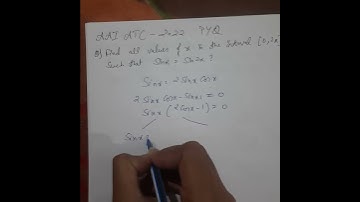 AAI ATC - 2022 PYQ
Q) Find all values of x in the interval [0, 2π]
Such that Sinx = Sin2x ?
Sinx = 2 Sinx Cosx
2 Sinx Cosx - Sinx = 0
Sinx (2 Cosx - 1) = 0
Sinx =